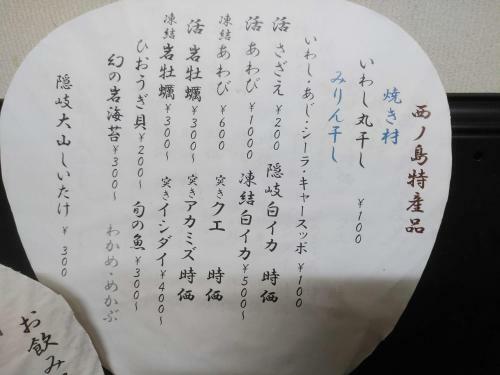 西ノ島特産品
焼き材
いわし丸干し ¥100
みりん干し
いわし・あじ・シーラ・キャースッポ ¥100
活 さざえ ¥200 隠岐白イカ 時価
活 あわび ¥1000 凍結白イカ ¥500~
凍結あわび ¥600 突き クエ 時価
活 岩牡蠣 ¥300~ 突き アカミズ 時価
凍結 岩牡蠣 ¥300~ 突き イシダイ ¥400~
ひおうぎ貝 ¥200~ 旬の魚 ¥300~
幻の岩海苔 ¥300~ わかめ・めかぶ
隠岐大山しいたけ ¥300
お飲み